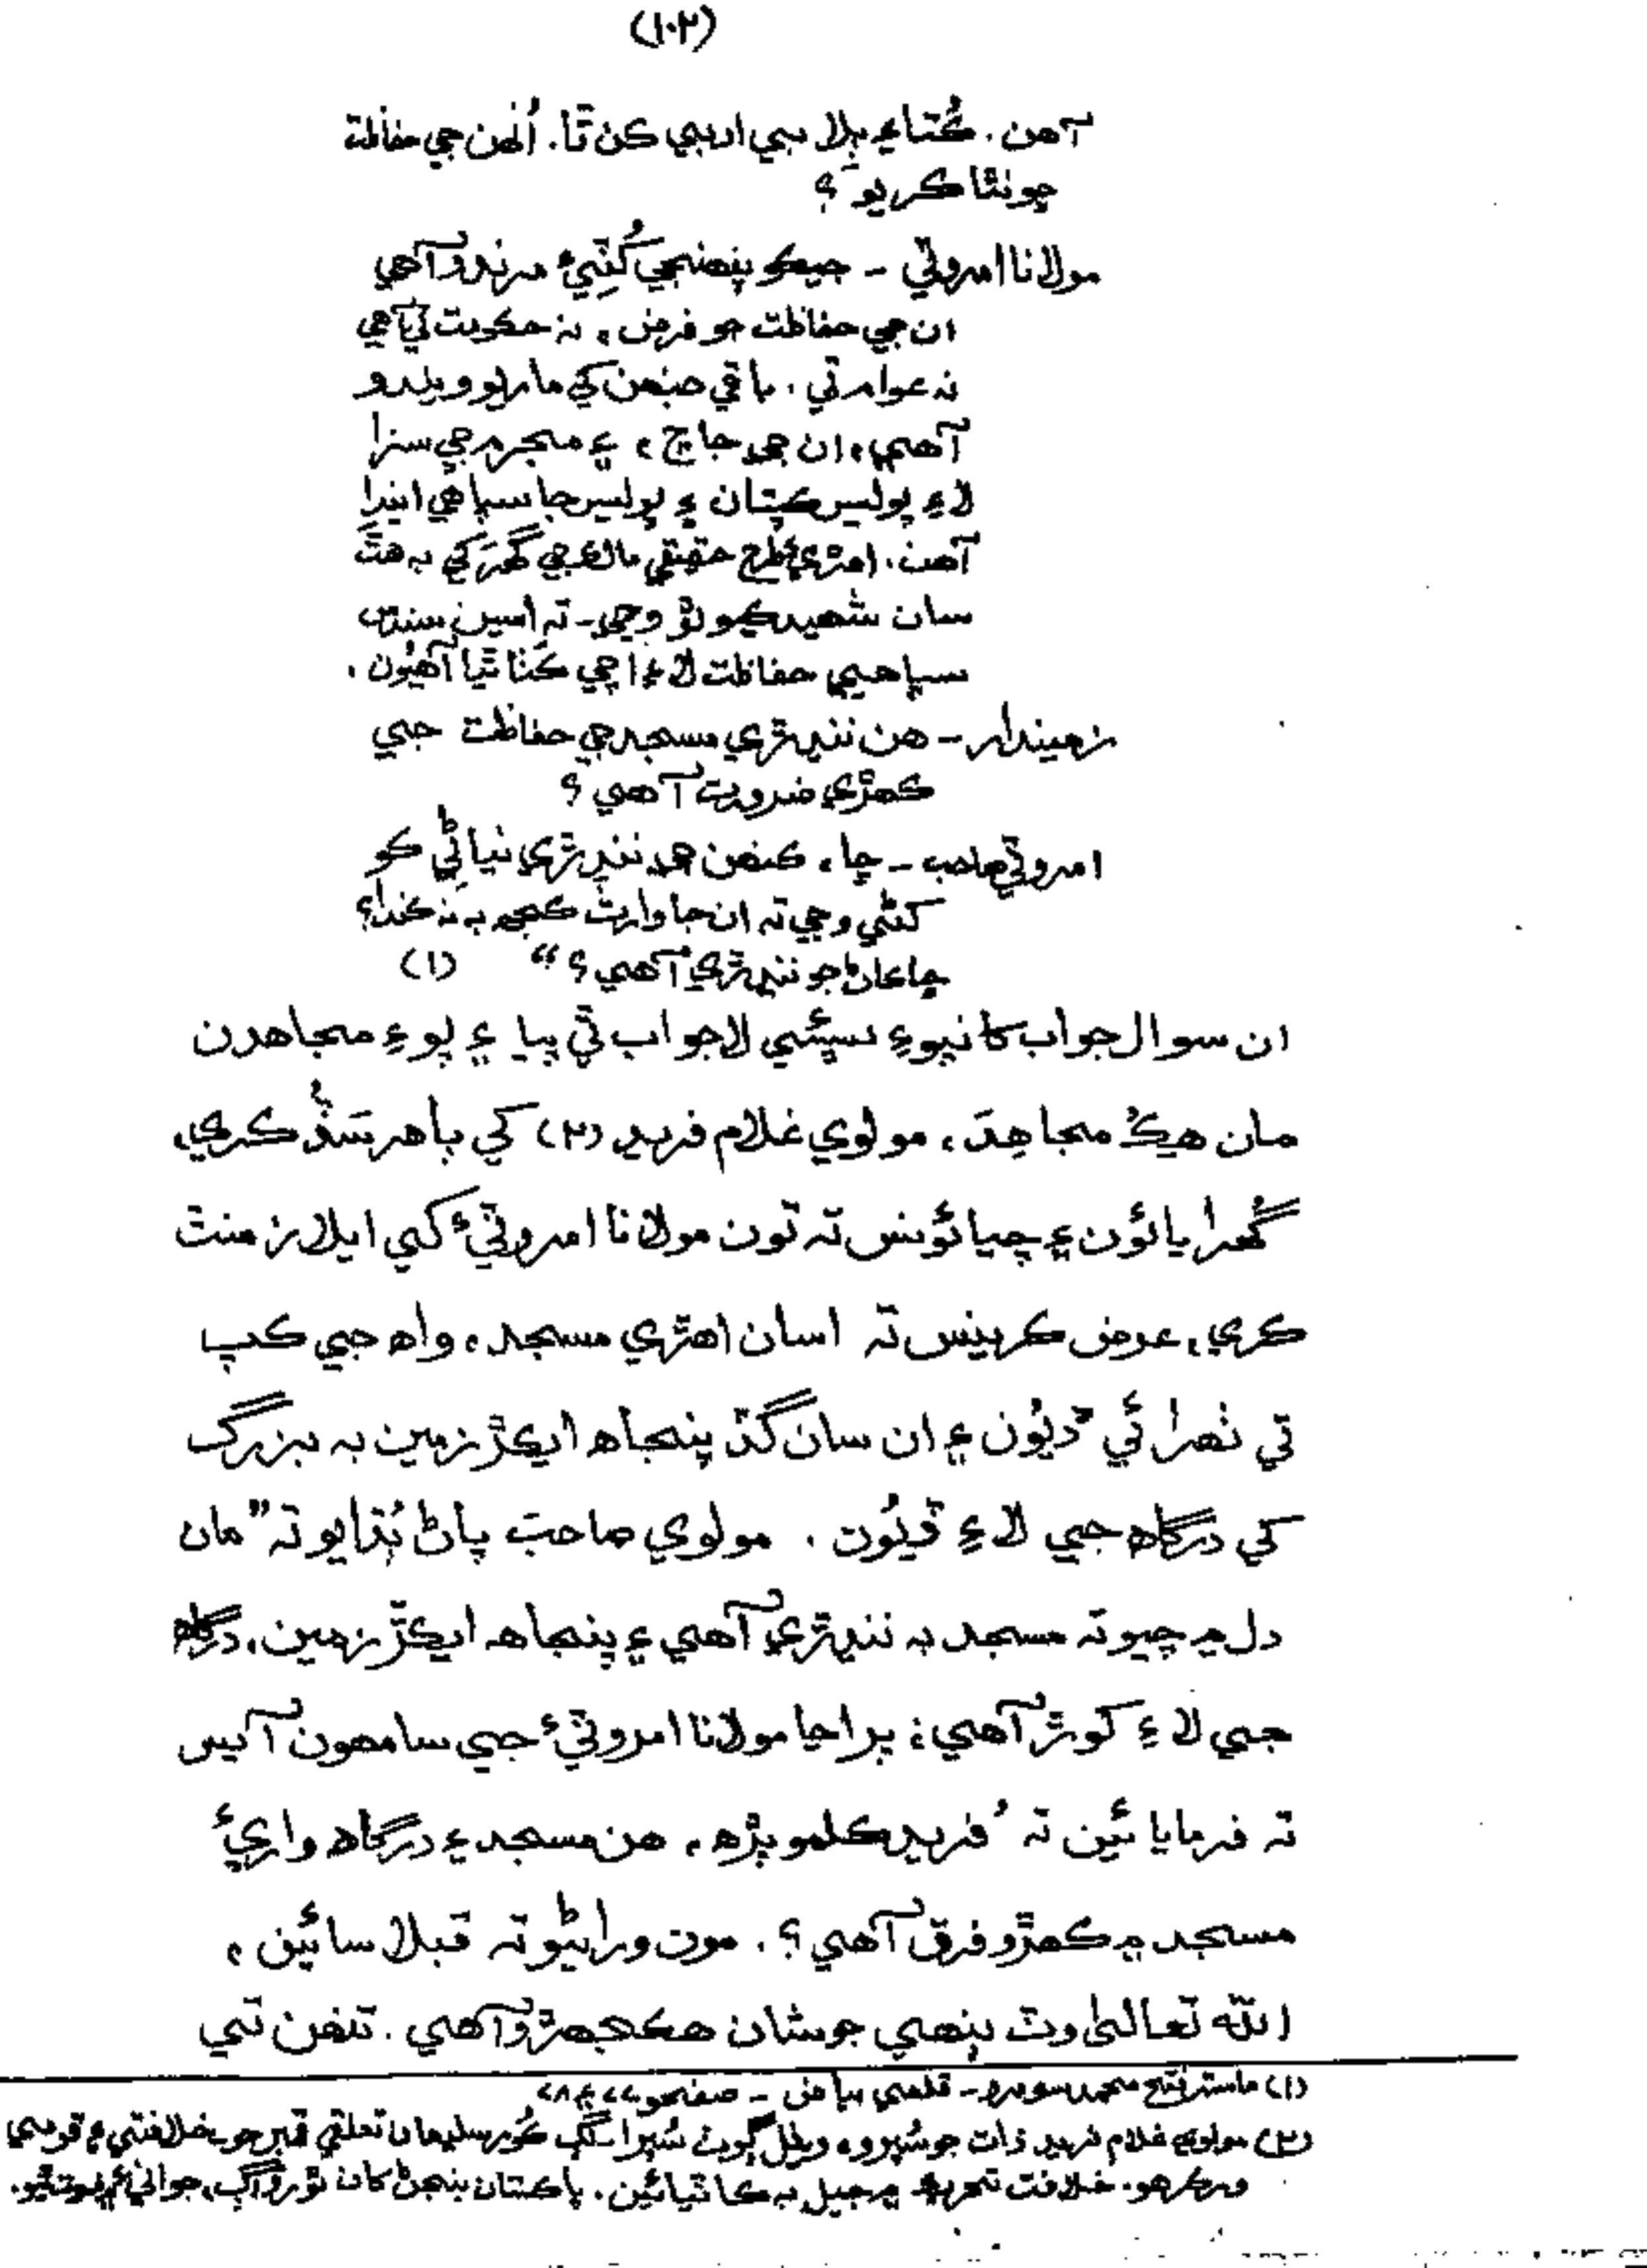 (١٠٢)
آهن. ڪُتا ۽ ٻلا بي ادبي ڪن ٿا. اُنهن جي حفاظت
ڇو نٿا ڪريو؟
مولانا امروٽي ـ جيڪو پنهنجي کُٽيءَ مرندو آهي
ان جي حفاظت جو فرض، نہ حڪومت تي آهي
نہ عوام تي. باقي جنهن کي ماريو ويندو
آهي، ان جي جاچ، ۽ مجرم جي سزا
لاءِ پوليس ڪپتان ۽ پوليس جا سپاهي ايندا
آهن. اهڙيءَ طرح حقيقي مالڪ جي گهر کي بہ هٿ
سان شهيد ڪيو ٿو وڃي ـ تہ اسين سندس
سپاهي حفاظت لاءِ اچي گڏ ٿيا آهيون.
زميندار ـ هن ننڍڙي مسجد جي حفاظت جي
ڪهڙي ضرورت آهي؟
امروٽي صاحب ـ ڇا، ڪنهن جي ننڍڙي نياڻي ڪو
کڻي وڃي تہ ان جا وارث ڪجهہ بہ نہ ڪندا؟
ڇاڪاڻ جو ننڍڙي آهي؟“ (١)
ان سوال جواب کانپوءِ سڀئي لاجواب ٿي پيا ۽ پوءِ مجاهدن
مان هڪ مجاهد، مولوي غلام فريد (٢) کي ٻاهر سڏ ڪري
گهرايائون ۽ چيائونس تہ تون مولانا امروٽيءَ کي ايلاز منٿ
ڪري، عرض ڪرينس تہ اسان اهڙي مسجد، واھ جي ڪپ
تي ٺهرائي ڏيون ۽ ان سان گڏ پنجاھ ايڪڙ زمين بہ بزرگ
کي درگاھ جي لاءِ ڏيُون. مولوي صاحب پاڻ ٻُڌايو تہ ”مان
دل ۾ چيو تہ مسجد بہ ننڍڙي آهي ۽ پنجاھ ايڪڙ زمين، درگاھ
جي لاءِ کوڙ آهي؛ پر اڃا مولانا امروٽيءَ جي سامهون آيس
تہ فرمايائين تہ ’فريد ڪلمو پڙھ، هن مسجد ۽ درگاھ واريءَ
مسجد ۾ ڪهڙو فرق آهي؟. مون وراڻيو تہ قبلا سائين،
الله تعاليٰ وٽ ٻنهي جو شان هڪجهڙو آهي. تنهن تي
(١) ماستر فتح محمد سومرو ـ قلمي بياض ـ صفحو ٧٧ ۽ ٧٨
(٢) مولوي غلام فريد ذات جو سُپرو، ويٺل ڳوٺ سُپرا لڳ تعلقي قنبر جو، خلافتي ۽ قومي
ورڪر هو. خلافت تحريڪ ۾ جيل بہ ڪاٽيائين. پاڪستان بنجڻ کان ٿورو اڳ، جواني ۾ فوت ٿيو.